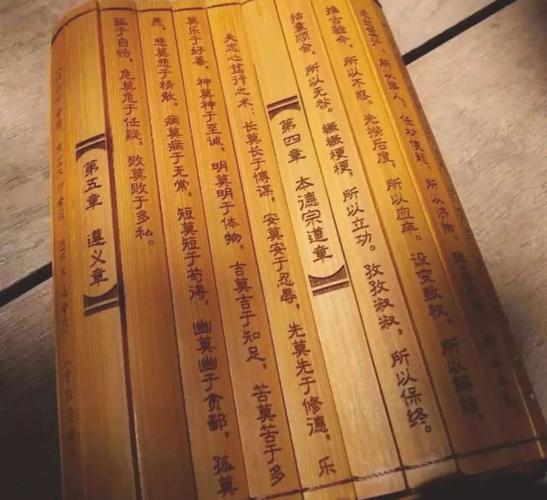 所以接人。任材使能，所以济物。
推古验今，所以不惑。先揆后度，所以应卒。设变致权，所以解结。
括囊顺会，所以无咎。橛橛梗梗，所以立功。孜孜淑淑，所以保终。
第四章 本德宗道章
夫志心笃行之术，长莫长于博谋，安莫安于忍辱，先莫先于修德，乐
莫乐于好善，神莫神于至诚，明莫明于体物，吉莫吉于知足，苦莫苦于多
愿，悲莫悲于精散，病莫病于无常，短莫短于苟得，幽莫幽于贪鄙，孤莫
孤于自恃，危莫危于任疑，败莫败于多私。
第五章 遵义章